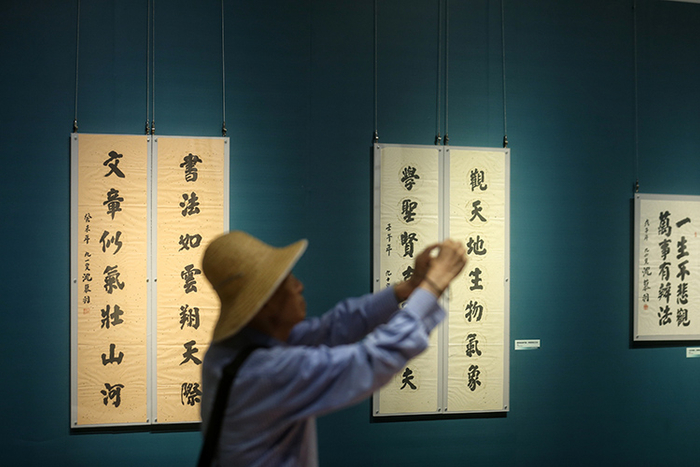 一生不悲觀
萬事有辦法
觀天地生物氣象
學聖賢 夫
壬午年
書法如雲翔天際
文章似氣壯山河
癸未年 九一叟 沈